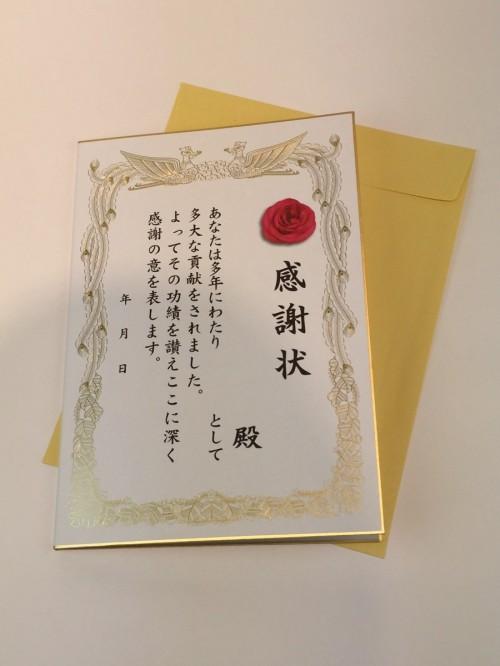 感謝状
殿
あなたは多年にわたり　　　として
多大な貢献をされました。
よってその功績を讃えここに深く
感謝の意を表します。
年　月　日